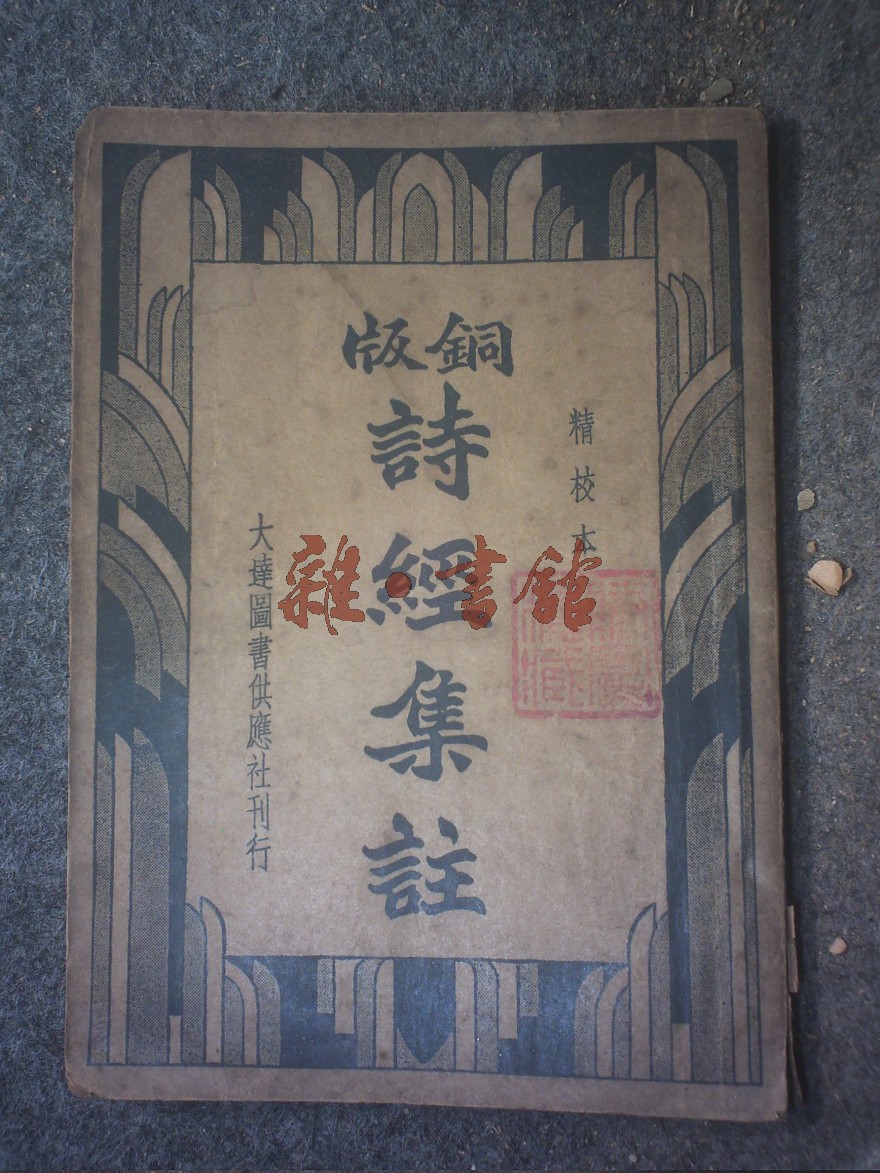 銅版
詩經集註
精校本
大達圖書供應社刊行
雜·書館